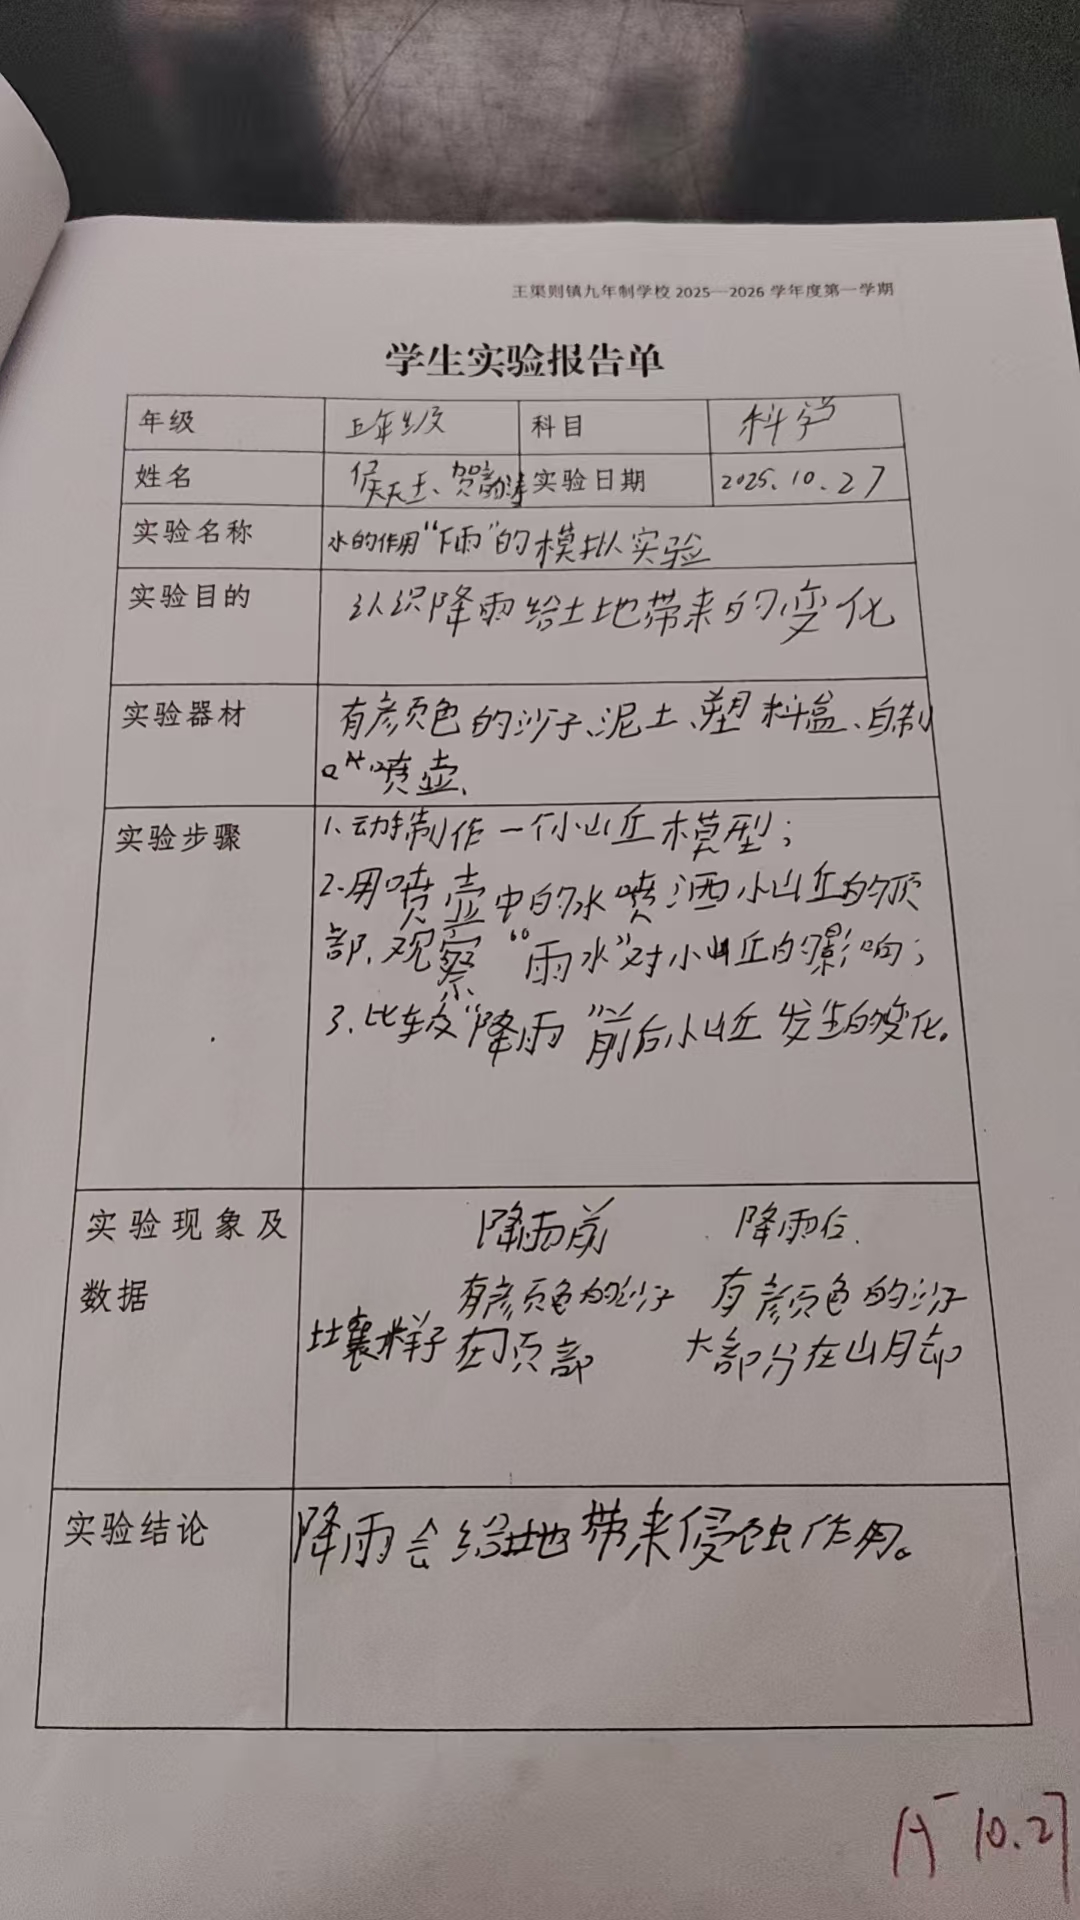 王渠则镇九年制学校 2025—2026 学年度第一学期
学生实验报告单
年级 五年级 科目 科学
姓名 侯天玉、贺韵涛 实验日期 2025.10.27
实验名称 水的作用“下雨”的模拟实验
实验目的 认识降雨给土地带来的变化
实验器材 有颜色的沙子、泥土、塑料盒、自制
喷壶、
实验步骤 1、动手制作一个小山丘模型；
2.用喷壶中的水喷洒小山丘的顶
部，观察“雨水”对小山丘的影响；
3.比较“降雨”前后小山丘发生的变化。
实验现象及 降雨前 降雨后
数据 有颜色的沙子 有颜色的沙子
土壤样子 在顶部 大部分在山脚
实验结论 降雨会给土地带来侵蚀作用。
A⁻ 10.27